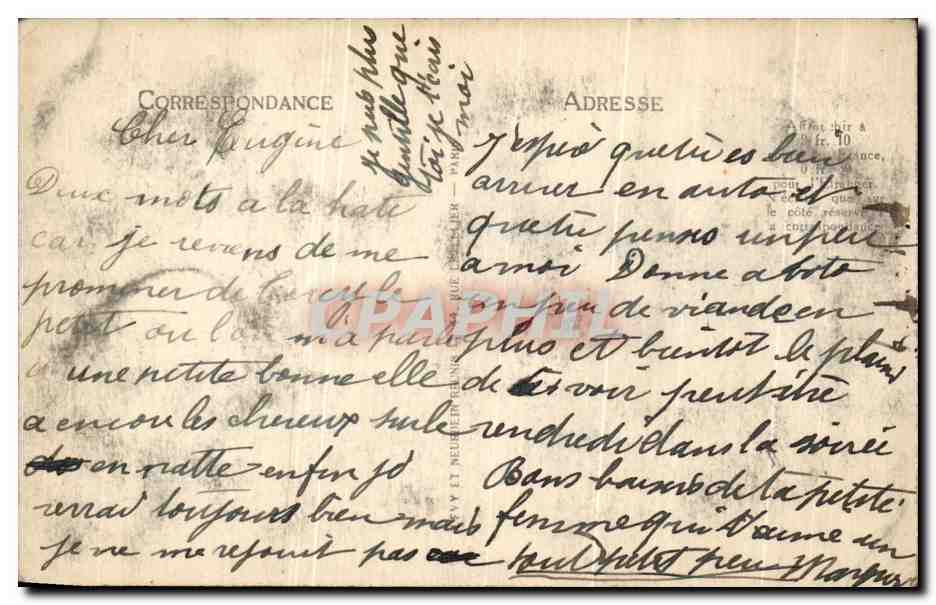 CORRESPONDANCE
Cher Eugène
Deux mots a la hate
car je reviens de me
promener de le
petit ou la m'a parlé
une petite bonne elle
a encor les cheveux sur le
en natte enfin je
verrai toujours bien mais
je ne me rejouit pas
je peus plus
gentille que
toi je t'écris
moi
ADRESSE
Affranchir à
0 fr. 10
J'espère que tu es bien
arriver en auto et
que tu penses un peu
a moi Donne a boto
un peu de viande en
plus et bientot le plaisir
de te voir peut être
vendredi dans la soirée
Bons baisers de ta petite
femme qui t'aime un
tout petit peu
LEVY ET NEURDEIN REUNIS, 44, RUE LETELLIER — PARIS
CPAPHIL